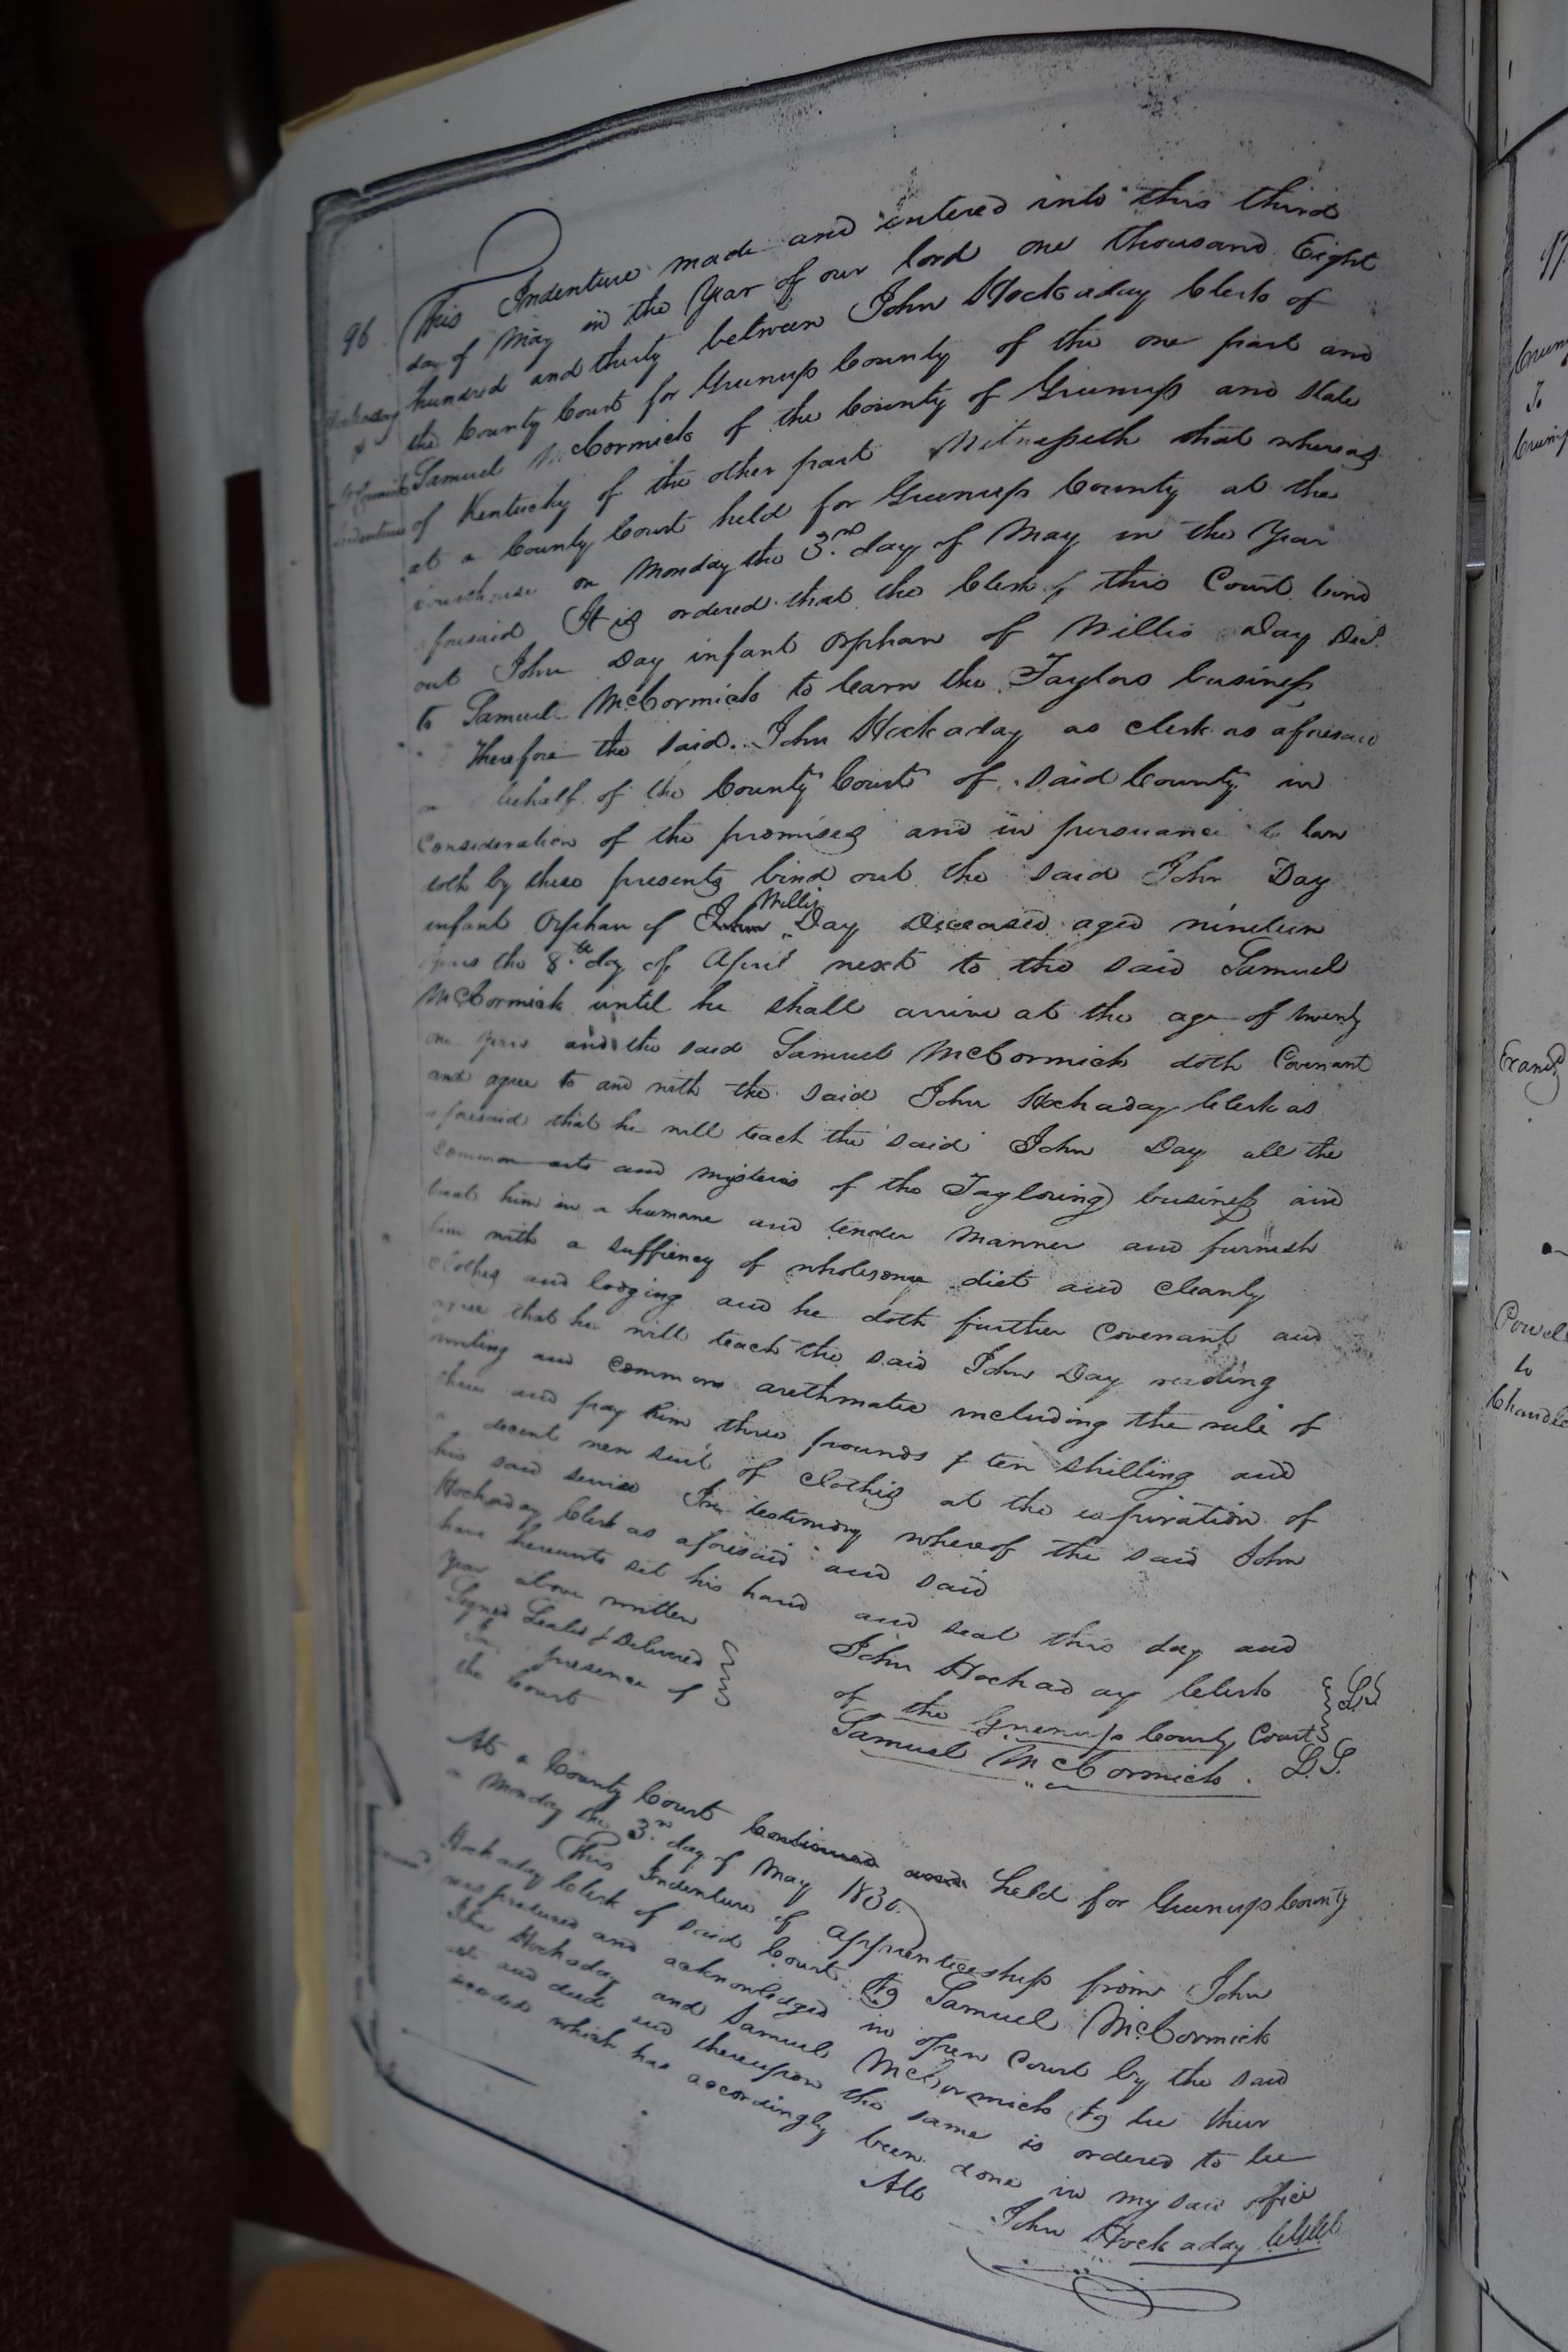 96
This Indenture made and entered into this third
day of May in the Year of our lord one thousand Eight
hundred and thirty between John Hockaday Clerk of
the County Court for Greenup County of the one part and
Samuel McCormick of the County of Greenup and State
of Kentucky of the other part Witnesseth that whereas
at a County Court held for Greenup County at the
courthouse on Monday the 3rd day of May in the Year
aforesaid It is ordered that the Clerk of this Court bind
out John Day infant orphan of Willis Day Decd.
to Samuel McCormick to learn the Taylors business
Therefore the said John Hockaday as clerk as aforesaid
on behalf of the County Court of said County in
Consideration of the promises and in pursuance to law
doth by these presents bind out the said John Day
infant Orphan of John Willis Day Deceased aged nineteen
years the 8th day of April next to the said Samuel
McCormick until he shall arrive at the age of twenty
one years and the said Samuel McCormick doth Covenant
and agree to and with the said John Hockaday Clerk as
aforesaid that he will teach the said John Day all the
common arts and mysteries of the Tayloring business and
treat him in a humane and tender manner and furnish
him with a suffiency of wholesome diet and cleanly
clothes and lodging and he doth further Covenant and
agree that he will teach the said John Day reading
writing and common arethmatic including the rule of
three and pay him three pounds & ten shilling and
a decent new suit of clothes at the expiration of
his said service In testimony whereof the said John
Hockaday Clerk as aforesaid and said
have hereunto set his hand and seal this day and
year above written
Signed Sealed & Delivered
in presence of
the Court
John Hockaday Clerk
of the Greenup County Court L.S
Samuel McCormick. L.S.
At a County Court Continued and held for Greenup County
on Monday the 3rd day of May 1830.
This Indenture of apprenticeship from John
Hockaday Clerk of said Court to Samuel McCormick
was produced and acknowledged in open Court by the said
John Hockaday and Samuel McCormick to be their
act and deed and thereupon the same is ordered to be
recorded which has accordingly been done in my said office
Att
John Hockaday
Hockaday
Indenture
Crump
To
Crump
Examd
Powell
to